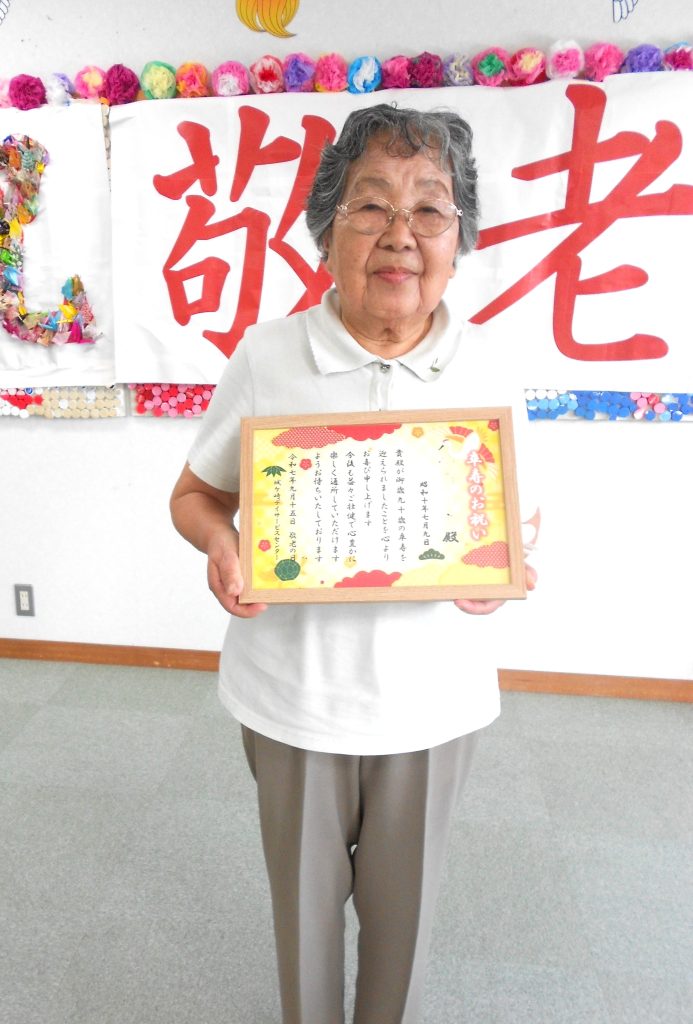 敬老
卒寿のお祝い
殿
昭和十年七月九日
貴殿が御歳九十歳の卒寿を
迎えられましたことを心より
お喜び申し上げます
今後も益々ご壮健で心豊かに
楽しく通所していただけます
ようお待ちいたしております
令和七年九月十五日 敬老の日
城ヶ崎デイサービスセンター